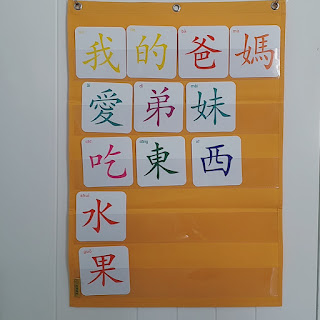 我的爸媽
愛弟妹
吃東西
水
果